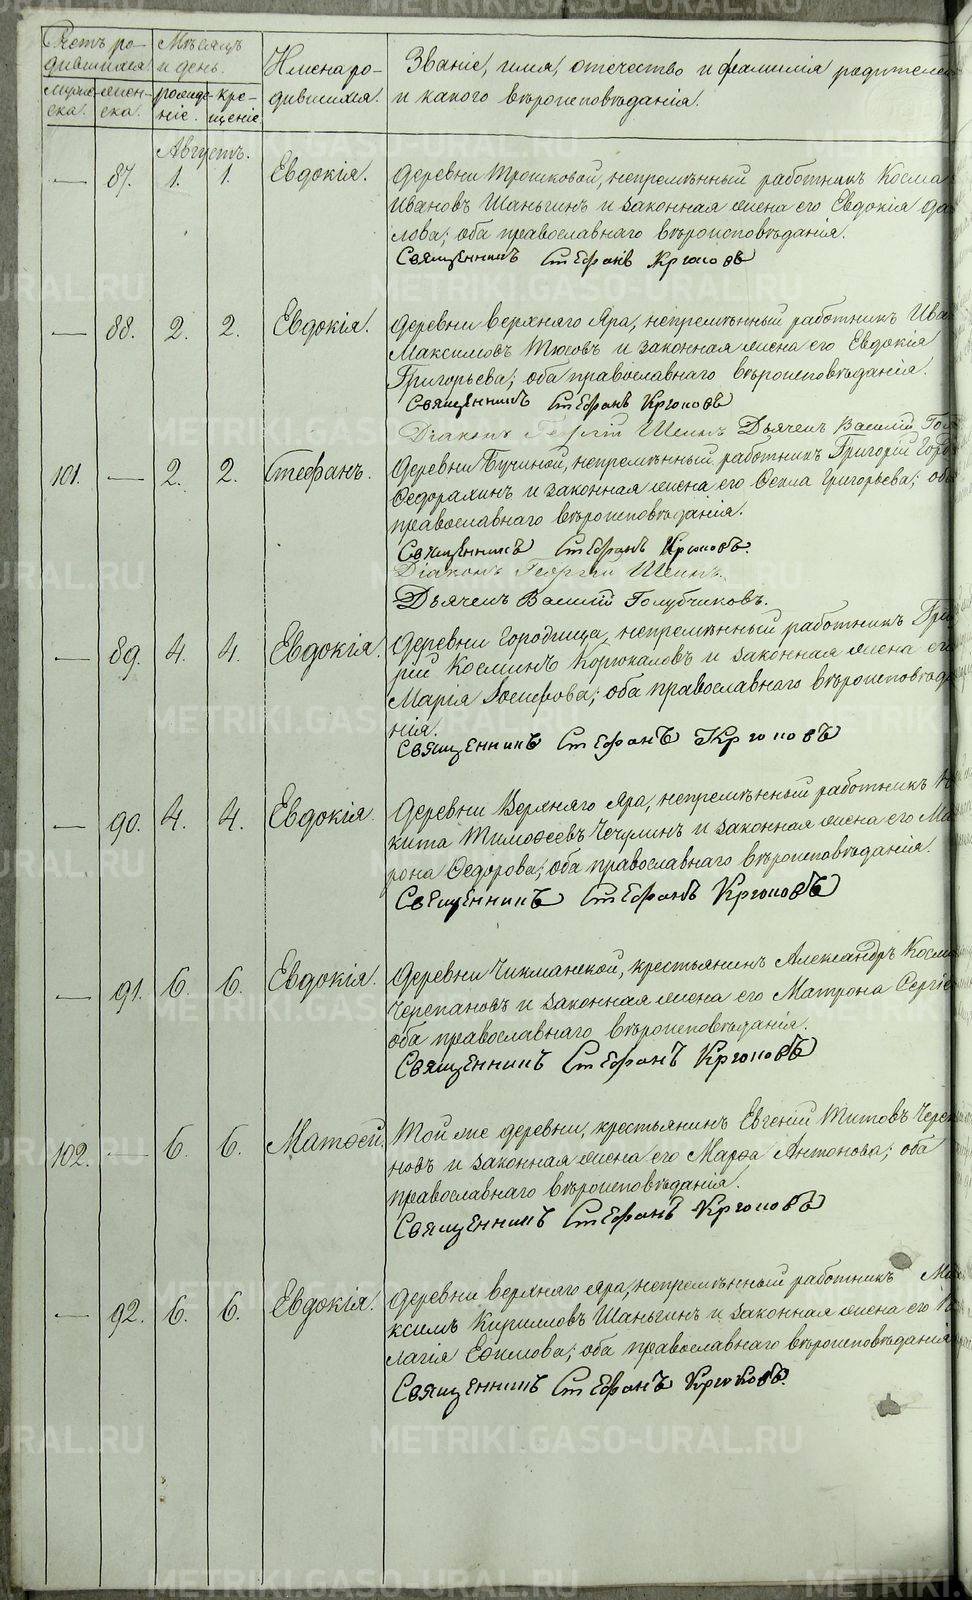 Счетъ ро-
дившихся.
Мѣсяцъ
и день.
Имена ро-
дившихся.
Званіе, имя, отечество и фамилія родителей
и какого вѣроисповѣданія.
муже-
ска.
жен-
ска.
рожде-
ніе.
кре-
щеніе
Августъ.
— 87. 1. 1. Евдокія. Деревни Трошковой, непремѣнный работникъ Косма
Ивановъ Шаньгинъ и законная жена его Евдокія
лова; оба православнаго вѣроисповѣданія.
Священникъ Стефанъ Крюковъ
— 88. 2. 2. Евдокія. Деревни Верхняго Яра, непремѣнный работникъ Ива
Максимовъ Тюсовъ и законная жена его Евдокія
Григорьева; оба православнаго вѣроисповѣданія.
Священникъ Стефанъ Крюковъ
Діаконъ Георгій Шеинъ Дьячекъ Василій Гол
101. — 2. 2. Стефанъ. Деревни Бучиной, непремѣнный работникъ Григорій
Федорахинъ и законная жена его Фекла Григорьева; оба
православнаго вѣроисповѣданія.
Священникъ Стефанъ Крюковъ.
Діаконъ Георгій Шеинъ.
Дьячекъ Василій Голубчиковъ.
— 89. 4. 4. Евдокія. Деревни Городища, непремѣнный работникъ Гри
рій Косминъ Коркокаловъ и законная жена его
Марія Іосифова; оба православнаго вѣроисповѣда
нія.
Священникъ Стефанъ Крюковъ
— 90. 4. 4. Евдокія. Деревни Верхняго Яра, непремѣнный работникъ Ни
кита Тимофеевъ Чечулинъ и законная жена его Ма
рона Федорова; оба православнаго вѣроисповѣданія.
Священникъ Стефанъ Крюковъ
— 91. 6. 6. Евдокія. Деревни Чикманской, крестьянинъ Александръ Косми
Черепановъ и законная жена его Матрона Сергіе
оба православнаго вѣроисповѣданія.
Священникъ Стефанъ Крюковъ
102. — 6. 6. Матѳей. Той же деревни, крестьянинъ Евгеній Титовъ Череп
новъ и законная жена его Марѳа Антонова; оба
православнаго вѣроисповѣданія.
Священникъ Стефанъ Крюковъ
— 92. 6. 6. Евдокія. Деревни Верхняго Яра, непремѣнный работникъ Ма
ксимъ Кирилловъ Шаньгинъ и законная жена его
лагія Ефимова; оба православнаго вѣроисповѣданія
Священникъ Стефанъ Крюковъ.
METRIKI.GASO-URAL.RU